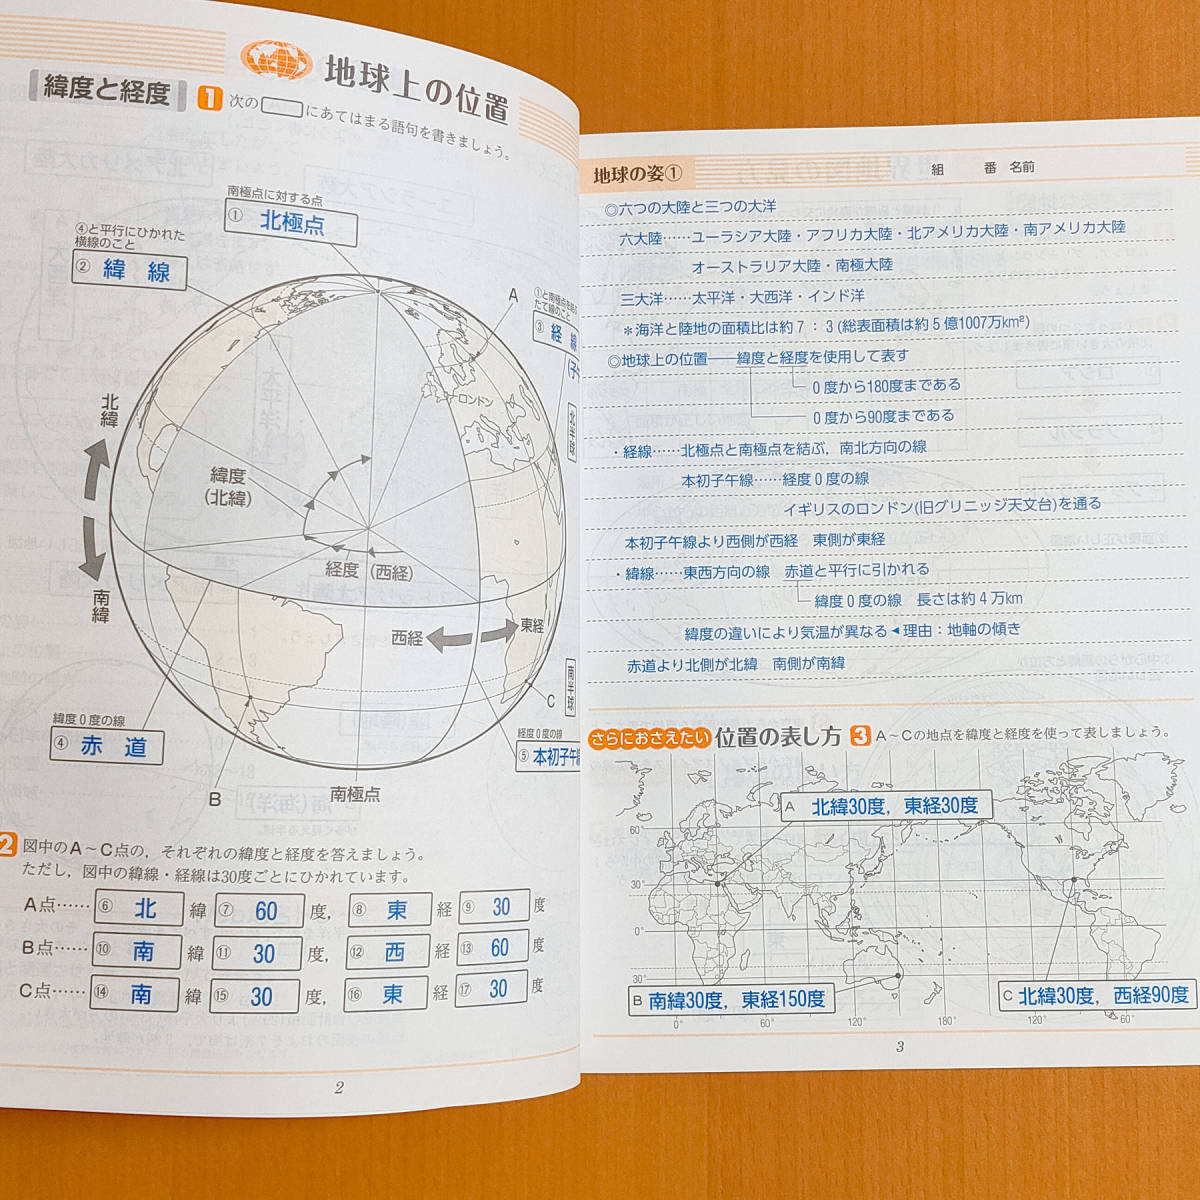 地球上の位置
緯度と経度
1 次の にあてはまる語句を書きましょう。
南極点に対する点
① 北極点
④と平行にひかれた
横線のこと
② 緯線
A
①と南極点を結
たて線のこと
③ 経
ロンドン
北半球
北緯
南緯
緯度
(北緯)
経度(西経)
西経
東経
南半球
C
緯度0度の線
④ 赤道
経度0度の線
⑤ 本初子午線
B
南極点
2 図中のA~C点の,それぞれの緯度と経度を答えましょう。
ただし,図中の緯線・経線は30度ごとにひかれています。
A点…… ⑥ 北 緯 ⑦ 60 度, ⑧ 東 経 ⑨ 30 度
B点…… ⑩ 南 緯 ⑪ 30 度, ⑫ 西 経 ⑬ 60 度
C点…… ⑭ 南 緯 ⑮ 30 度, ⑯ 東 経 ⑰ 30 度
2
地球の姿①
組 番 名前
◎六つの大陸と三つの大洋
六大陸……ユーラシア大陸・アフリカ大陸・北アメリカ大陸・南アメリカ大陸
オーストラリア大陸・南極大陸
三大洋……太平洋・大西洋・インド洋
*海洋と陸地の面積比は約7:3(総表面積は約5億1007万km²)
◎地球上の位置——緯度と経度を使用して表す
0度から180度まである
0度から90度まである
・経線……北極点と南極点を結ぶ,南北方向の線
本初子午線……経度0度の線
イギリスのロンドン(旧グリニッジ天文台)を通る
本初子午線より西側が西経 東側が東経
・緯線……東西方向の線 赤道と平行に引かれる
緯度0度の線 長さは約4万km
緯度の違いにより気温が異なる◀理由:地軸の傾き
赤道より北側が北緯 南側が南緯
さらにおさえたい 位置の表し方 3 A~Cの地点を緯度と経度を使って表しましょう。
A 北緯30度,東経30度
60°
30°
0°
30°
B 南緯30度,東経150度
C 北緯30度,西経90度
0° 60° 120° 180° 120° 60°
3